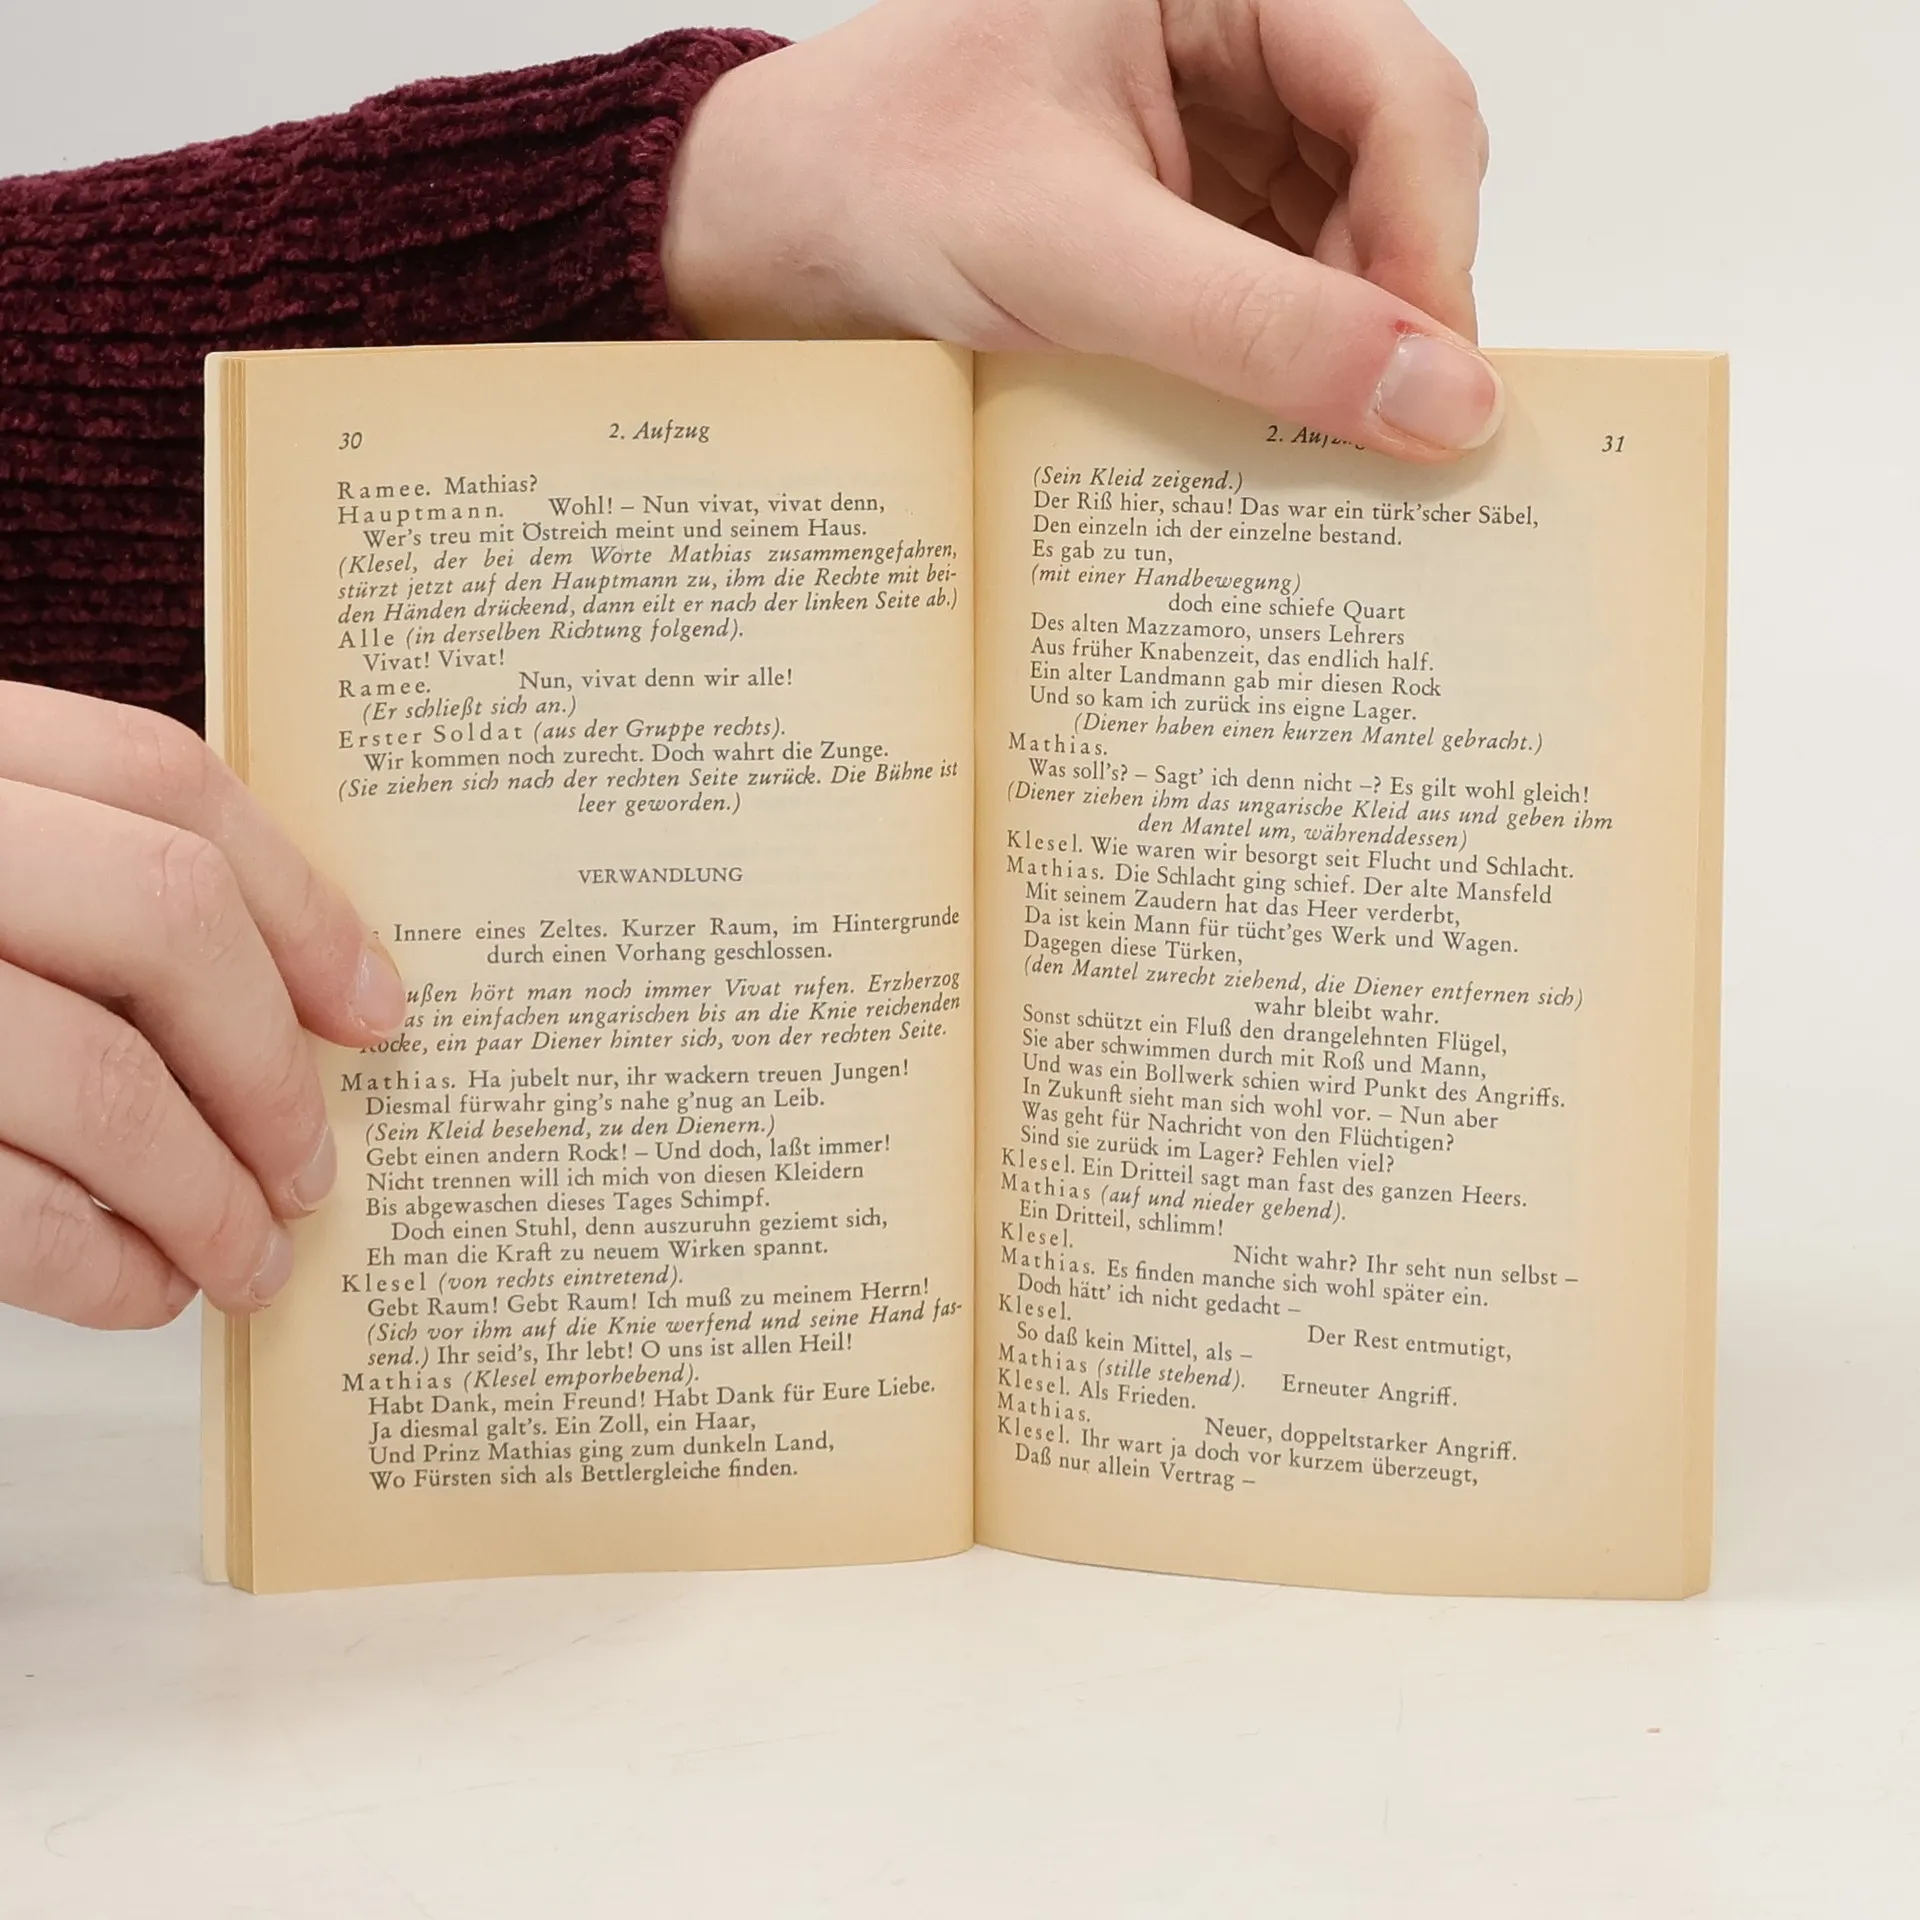 30
2. Aufzug
Ramee. Mathias?
Hauptmann. Wohl! – Nun vivat, vivat denn,
Wer's treu mit Östreich meint und seinem Haus.
(Klesel, der bei dem Worte Mathias zusammengefahren,
stürzt jetzt auf den Hauptmann zu, ihm die Rechte mit bei-
den Händen drückend, dann eilt er nach der linken Seite ab.)
Alle (in derselben Richtung folgend).
Vivat! Vivat!
Ramee. Nun, vivat denn wir alle!
(Er schließt sich an.)
Erster Soldat (aus der Gruppe rechts).
Wir kommen noch zurecht. Doch wahrt die Zunge.
(Sie ziehen sich nach der rechten Seite zurück. Die Bühne ist
leer geworden.)
VERWANDLUNG
Innere eines Zeltes. Kurzer Raum, im Hintergrunde
durch einen Vorhang geschlossen.
hört man noch immer Vivat rufen. Erzherzog
in einfachen ungarischen bis an die Knie reichenden
Rocke, ein paar Diener hinter sich, von der rechten Seite.
Mathias. Ha jubelt nur, ihr wackern treuen Jungen!
Diesmal fürwahr ging's nahe g'nug an Leib.
(Sein Kleid besehend, zu den Dienern.)
Gebt einen andern Rock! – Und doch, laßt immer!
Nicht trennen will ich mich von diesen Kleidern
Bis abgewaschen dieses Tages Schimpf.
Doch einen Stuhl, denn auszuruhn geziemt sich,
Eh man die Kraft zu neuem Wirken spannt.
Klesel (von rechts eintretend).
Gebt Raum! Gebt Raum! Ich muß zu meinem Herrn!
(Sich vor ihm auf die Knie werfend und seine Hand fas-
send.) Ihr seid's, Ihr lebt! O uns ist allen Heil!
Mathias (Klesel emporhebend).
Habt Dank, mein Freund! Habt Dank für Eure Liebe.
Ja diesmal galt's. Ein Zoll, ein Haar,
Und Prinz Mathias ging zum dunkeln Land,
Wo Fürsten sich als Bettlergleiche finden.
2.
31
(Sein Kleid zeigend.)
Der Riß hier, schau! Das war ein türk'scher Säbel,
Den einzeln ich der einzelne bestand.
Es gab zu tun,
(mit einer Handbewegung)
doch eine schiefe Quart
Des alten Mazzamoro, unsers Lehrers
Aus früher Knabenzeit, das endlich half.
Ein alter Landmann gab mir diesen Rock
Und so kam ich zurück ins eigne Lager.
(Diener haben einen kurzen Mantel gebracht.)
Mathias.
Was soll's? – Sagt' ich denn nicht –? Es gilt wohl gleich!
(Diener ziehen ihm das ungarische Kleid aus und geben ihm
den Mantel um, währenddessen)
Klesel. Wie waren wir besorgt seit Flucht und Schlacht.
Mathias. Die Schlacht ging schief. Der alte Mansfeld
Mit seinem Zaudern hat das Heer verderbt,
Da ist kein Mann für tücht'ges Werk und Wagen.
Dagegen diese Türken,
(den Mantel zurecht ziehend, die Diener entfernen sich)
wahr bleibt wahr.
Sonst schützt ein Fluß den drangelehnten Flügel,
Sie aber schwimmen durch mit Roß und Mann,
Und was ein Bollwerk schien wird Punkt des Angriffs.
In Zukunft sieht man sich wohl vor. – Nun aber
Was geht für Nachricht von den Flüchtigen?
Sind sie zurück im Lager? Fehlen viel?
Klesel. Ein Dritteil sagt man fast des ganzen Heers.
Mathias (auf und nieder gehend).
Ein Dritteil, schlimm!
Klesel. Nicht wahr? Ihr seht nun selbst –
Mathias. Es finden manche sich wohl später ein.
Doch hätt' ich nicht gedacht –
Klesel. Der Rest entmutigt,
So daß kein Mittel, als –
Mathias (stille stehend). Erneuter Angriff.
Klesel. Als Frieden.
Mathias. Neuer, doppeltstarker Angriff.
Klesel. Ihr wart ja doch vor kurzem überzeugt,
Daß nur allein Vertrag –